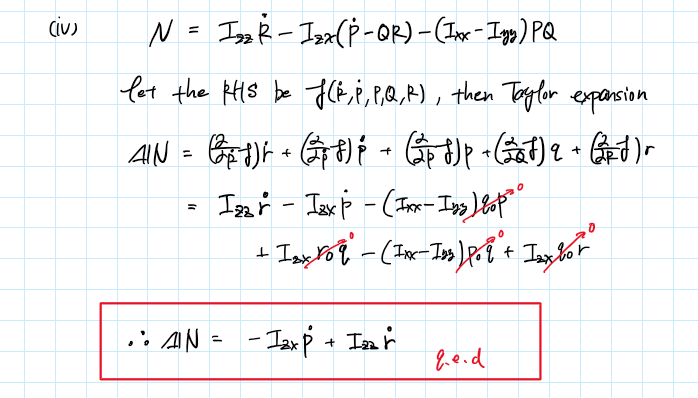 (iv) N = I_zz Ṙ − I_zx(Ṗ − QR) − (I_xx − I_yy)PQ
let the RHS be f(Ṙ, Ṗ, P, Q, R), then Taylor expansion
ΔN = (∂/∂Ṙ f)ṙ + (∂/∂Ṗ f)ṗ + (∂/∂P f)p + (∂/∂Q f)q + (∂/∂R f)r
= I_zz ṙ − I_zx ṗ − (I_xx − I_yy)q₀p 0
+ I_zx r₀q 0 − (I_xx − I_yy)p₀q 0 + I_zx q₀r 0
∴ ΔN = −I_zx ṗ + I_zz ṙ
q.e.d